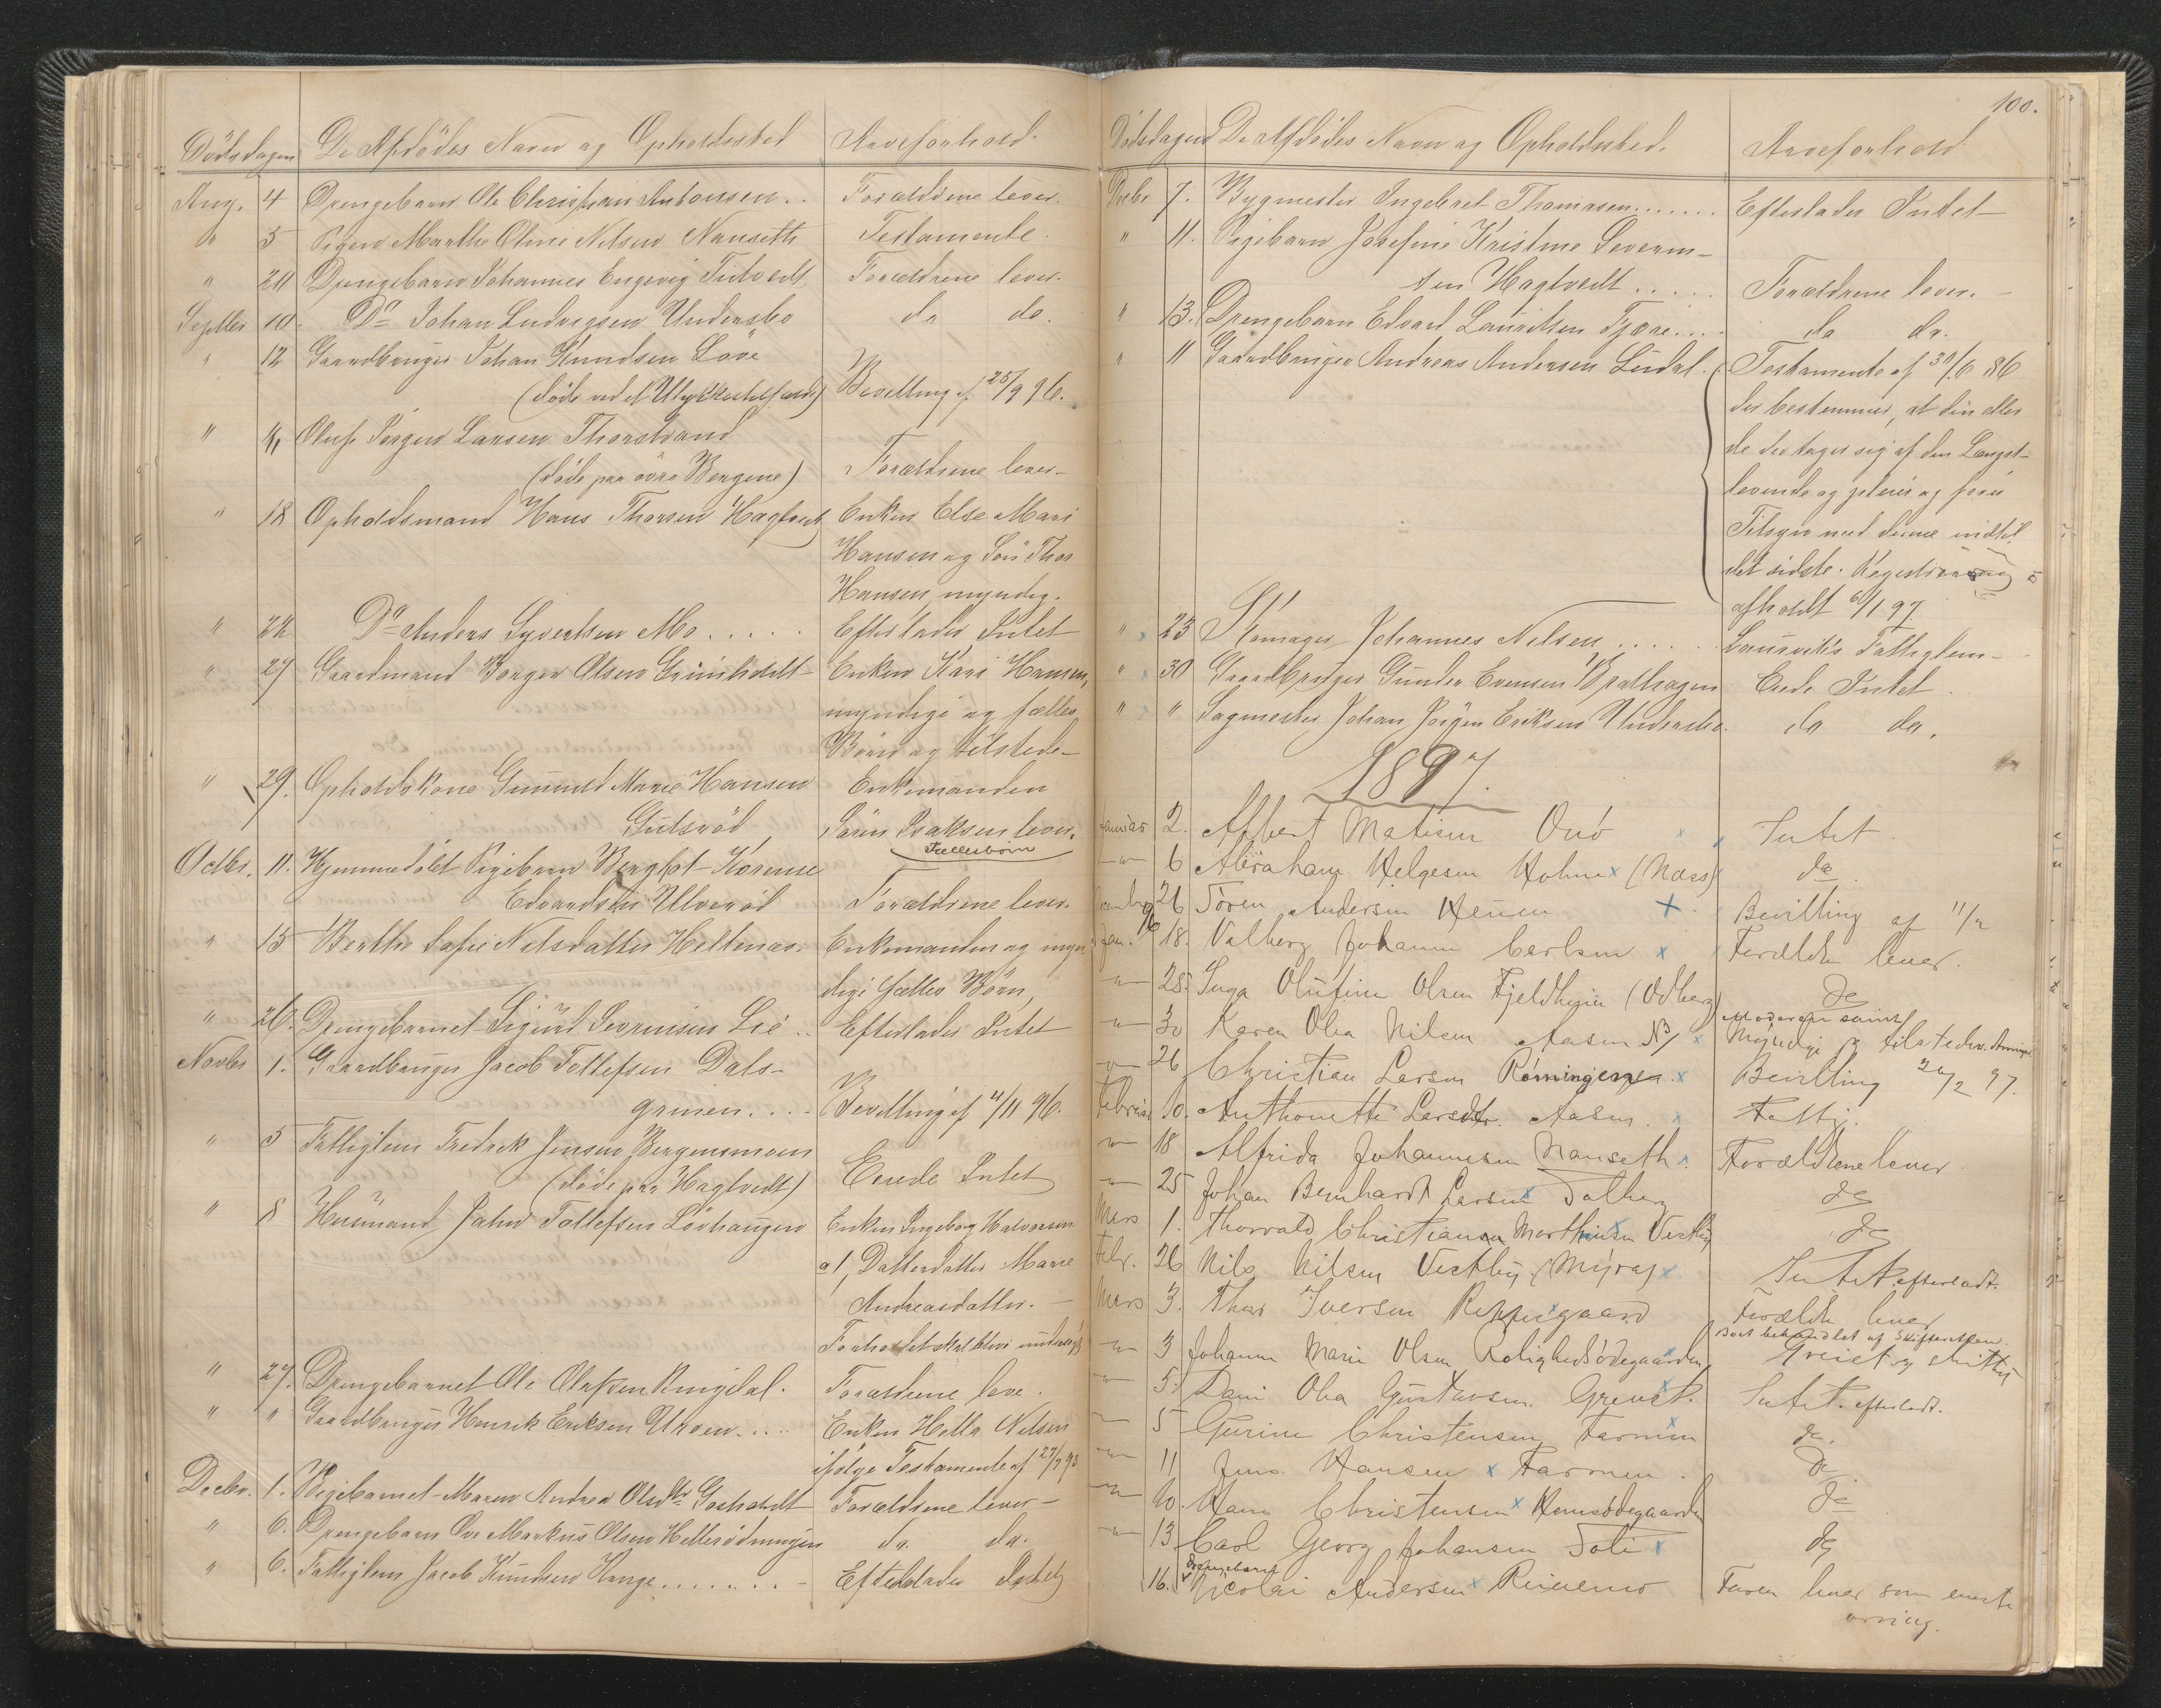 Dödsdagen De Afdödes Navn og Opholdssted Arveforhold
Aug. 4 Drengebarn Ole Christian Antonsen.. Forældrene lever.
" 5 Pigen Marthe Oline Nilsen Nanseth Testamente.
" 20 Drengebarn Johannes Engevig Tutvedt Forældrene lever.
Septbr 10. Do Johan Ludvigsen Undersbo do do.
" 12 Gaardbruger Johan Knudsen Löve
(döde ved et Ulykkestilfælde) Bevilling af 25/9 96.
" 14 Oluf Jörgen Larsen Thorstrand
(döde paa övre Bergene) Forældrene lever
" 18 Opholdsmand Hans Thorsen Hagtvedt Enken Else Mari
Hansen og Sön Thor
Hansen, myndig.
" 22 Do Anders Syvertsen Mo . . . . . Efterlader Intet
" 27 Gaardmand Borger Olsen Grimholdt Enken Kari Hansen,
myndige og fælles
Börn og tilstede
" 29. Opholdskone Gunnild Marie Hansen Enkemanden
Gutsröd, Sören Isaksen lever.
Fællesbörn
Octbr. 11. Hjemmedöbt Pigebarn Borghot Karense
Edvardsen Ulveröd Forældrene lever.
" 15 Berthe Sofie Nilsdatter Hellenæs. Enkemanden og myn-
dige fælles Börn,
" 26. Drengebarnet Sigurd Severinsen Lie .. Efterlader Intet
Novbr 1. Gaardbruger Jacob Tollefsen Dals-
grinen. . . . Bevilling af 4/11 96.
" 5 Fattiglem Fredrik Jensen Bergensmoen
(döde paa Hagtvedt) Eiede Intet
" 8 Husmand Jahn Tollefsen Lövhaugen Enken Ingeborg Halvorsen
og 1, Datterdatter Marie
Andreasdatter. —
Forholdet skal blive undersøgt
" 27. Drengebarnet Ole Olafsen Ringdal. Forældrene leve.
" " Gaardbruger Henrik Eriksen Ulsven. . . . Enken Hella Nilsen
ifölge Testamente af 27/7 93
Decbr. 1. Pigebarnet Maren Andrea Olsdtr Gosholdt Forældrene lever
" 6. Drengebarn Ove Markus Olsen Hellerödningen do. do.
" 6. Fattiglem Jacob Knudsen Hange . . . . . . . Efterlader Intet
100.
Dödsdagen De Afdödes Navn og Opholdssted. Arveforhold
Decbr 7. Bygmester Ingebret Thomasen....... Efterlader Intet
" 11. Pigebarn Josefine Kristine Severin-
sen Hagtvedt . . . . . Forældrene lever.
" 13. Drengebarn Edvard Lauritsen Tjøre.... do do.
" 11 Gaardbruger Andreas Andersen Lindal. Testamente af 30/6 86
der bestemmer, at din eller
de der tager sig af den Længst-
levende og pleier og fører
Tilsyn med denne indtil
det sidste. Registrering
afholdt 6/1 97
" 23 Skomager Johannes Nilsen . . . . . Laurviks Fattiglem
" 30 Gaardbruger Gunder Evensen Brathagen Eiede Intet
" " Sagmester Johan Jörgen Eriksen Undersbo. do do.
1897.
Januar 2. Albert Matisen Onö Intet
— " — 6 Abraham Helgesen Holme x (Næss) do.
Decembr 96 26 Søren Andersen Heum x Bevilling af 11/2
Jan. 18. Valborg Johanne Carlsen x Foreldre lever.
— " — 28. Inga Olufine Olsen Fjeldhjem (Odberg) do
— " — 30 Karen Olea Nilsen Aasen x Moderen samt
Myndige og tilstede
— " — 26 Christian Larsen Rømningen x Bevilling 26/2 97.
Februar 10. Anthonette Larsdtr. Aasen. x Fattig.
— " — 18 Alfrida Johannesen Nanseth. Forældrene lever
— " — 25 Johan Bernhard Larsen x Dalberg do
Mars 1. Thorvald Christiansen Marthinsen Vestby do
Febr. 26 Nils Nilsen Vestby (Myra) x Intet efterladt.
Mars 3. Thor Iversen Reppesgaard Foreldre lever
— " — 3 Johanne Marie Olsen Rolighedsødegaarden Boet behandlet af Skifteretten.
— " — 5. Dani Olea Gustavsen Grevst. Intet. efterladt.
— " — 5 Gurine Christensen Farmen do.
— " — 11 Jens Hansen x Farmen. do
— " — 10. Hans Christensen x Hemsødegaarden do
— " — 13 Carl Georg Johansen Toti x do
16. Drengebarnet
Nicolai Andersen x Reinemo Faren lever som eneste
arving.